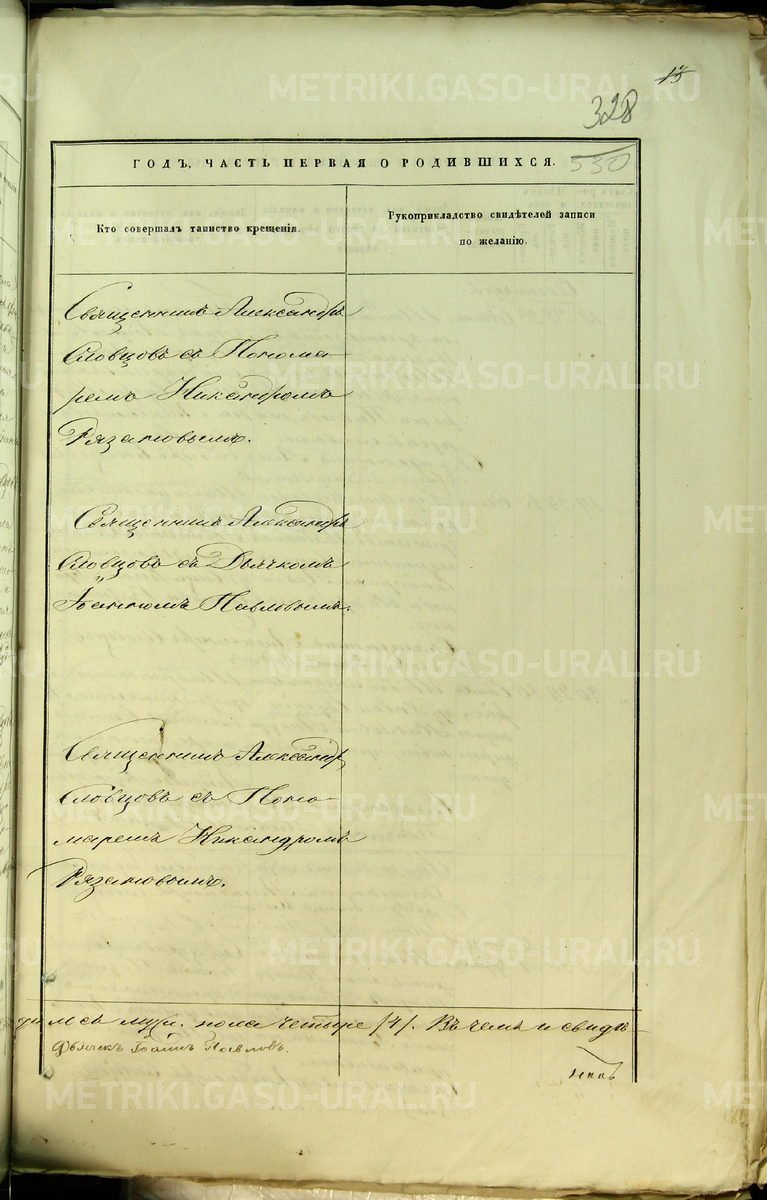 15
328
530
ГОДЪ, ЧАСТЬ ПЕРВАЯ О РОДИВШИХСЯ.
Кто совершалъ таинство крещенія.
Рукоприкладство свидѣтелей записи
по желанію.
Священникъ Александръ
Словцовъ съ Понома
ремъ Никандромъ
Рязановымъ.
Священникъ Александръ
Словцовъ съ Дьячкомъ
Іоанномъ Павловымъ.
Священникъ Александръ
Словцовъ съ Поно-
маремъ Никандромъ
Рязановымъ.
муж. пола четыре /4/. Въ чемъ и свидѣ
Дьячекъ Іоаннъ Павловъ.
METRIKI.GASO-URAL.RU